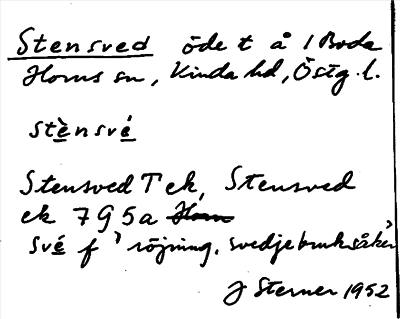 Stensved öde t å i Boda
Horns sn, Kinda hd, Östg. l.
stè̱nsvé̱
Stensved T ek, Stensved
ek 7 9 5a Horn
své̱ f ’röjning, svedjebruksåker’
J Sterner 1952